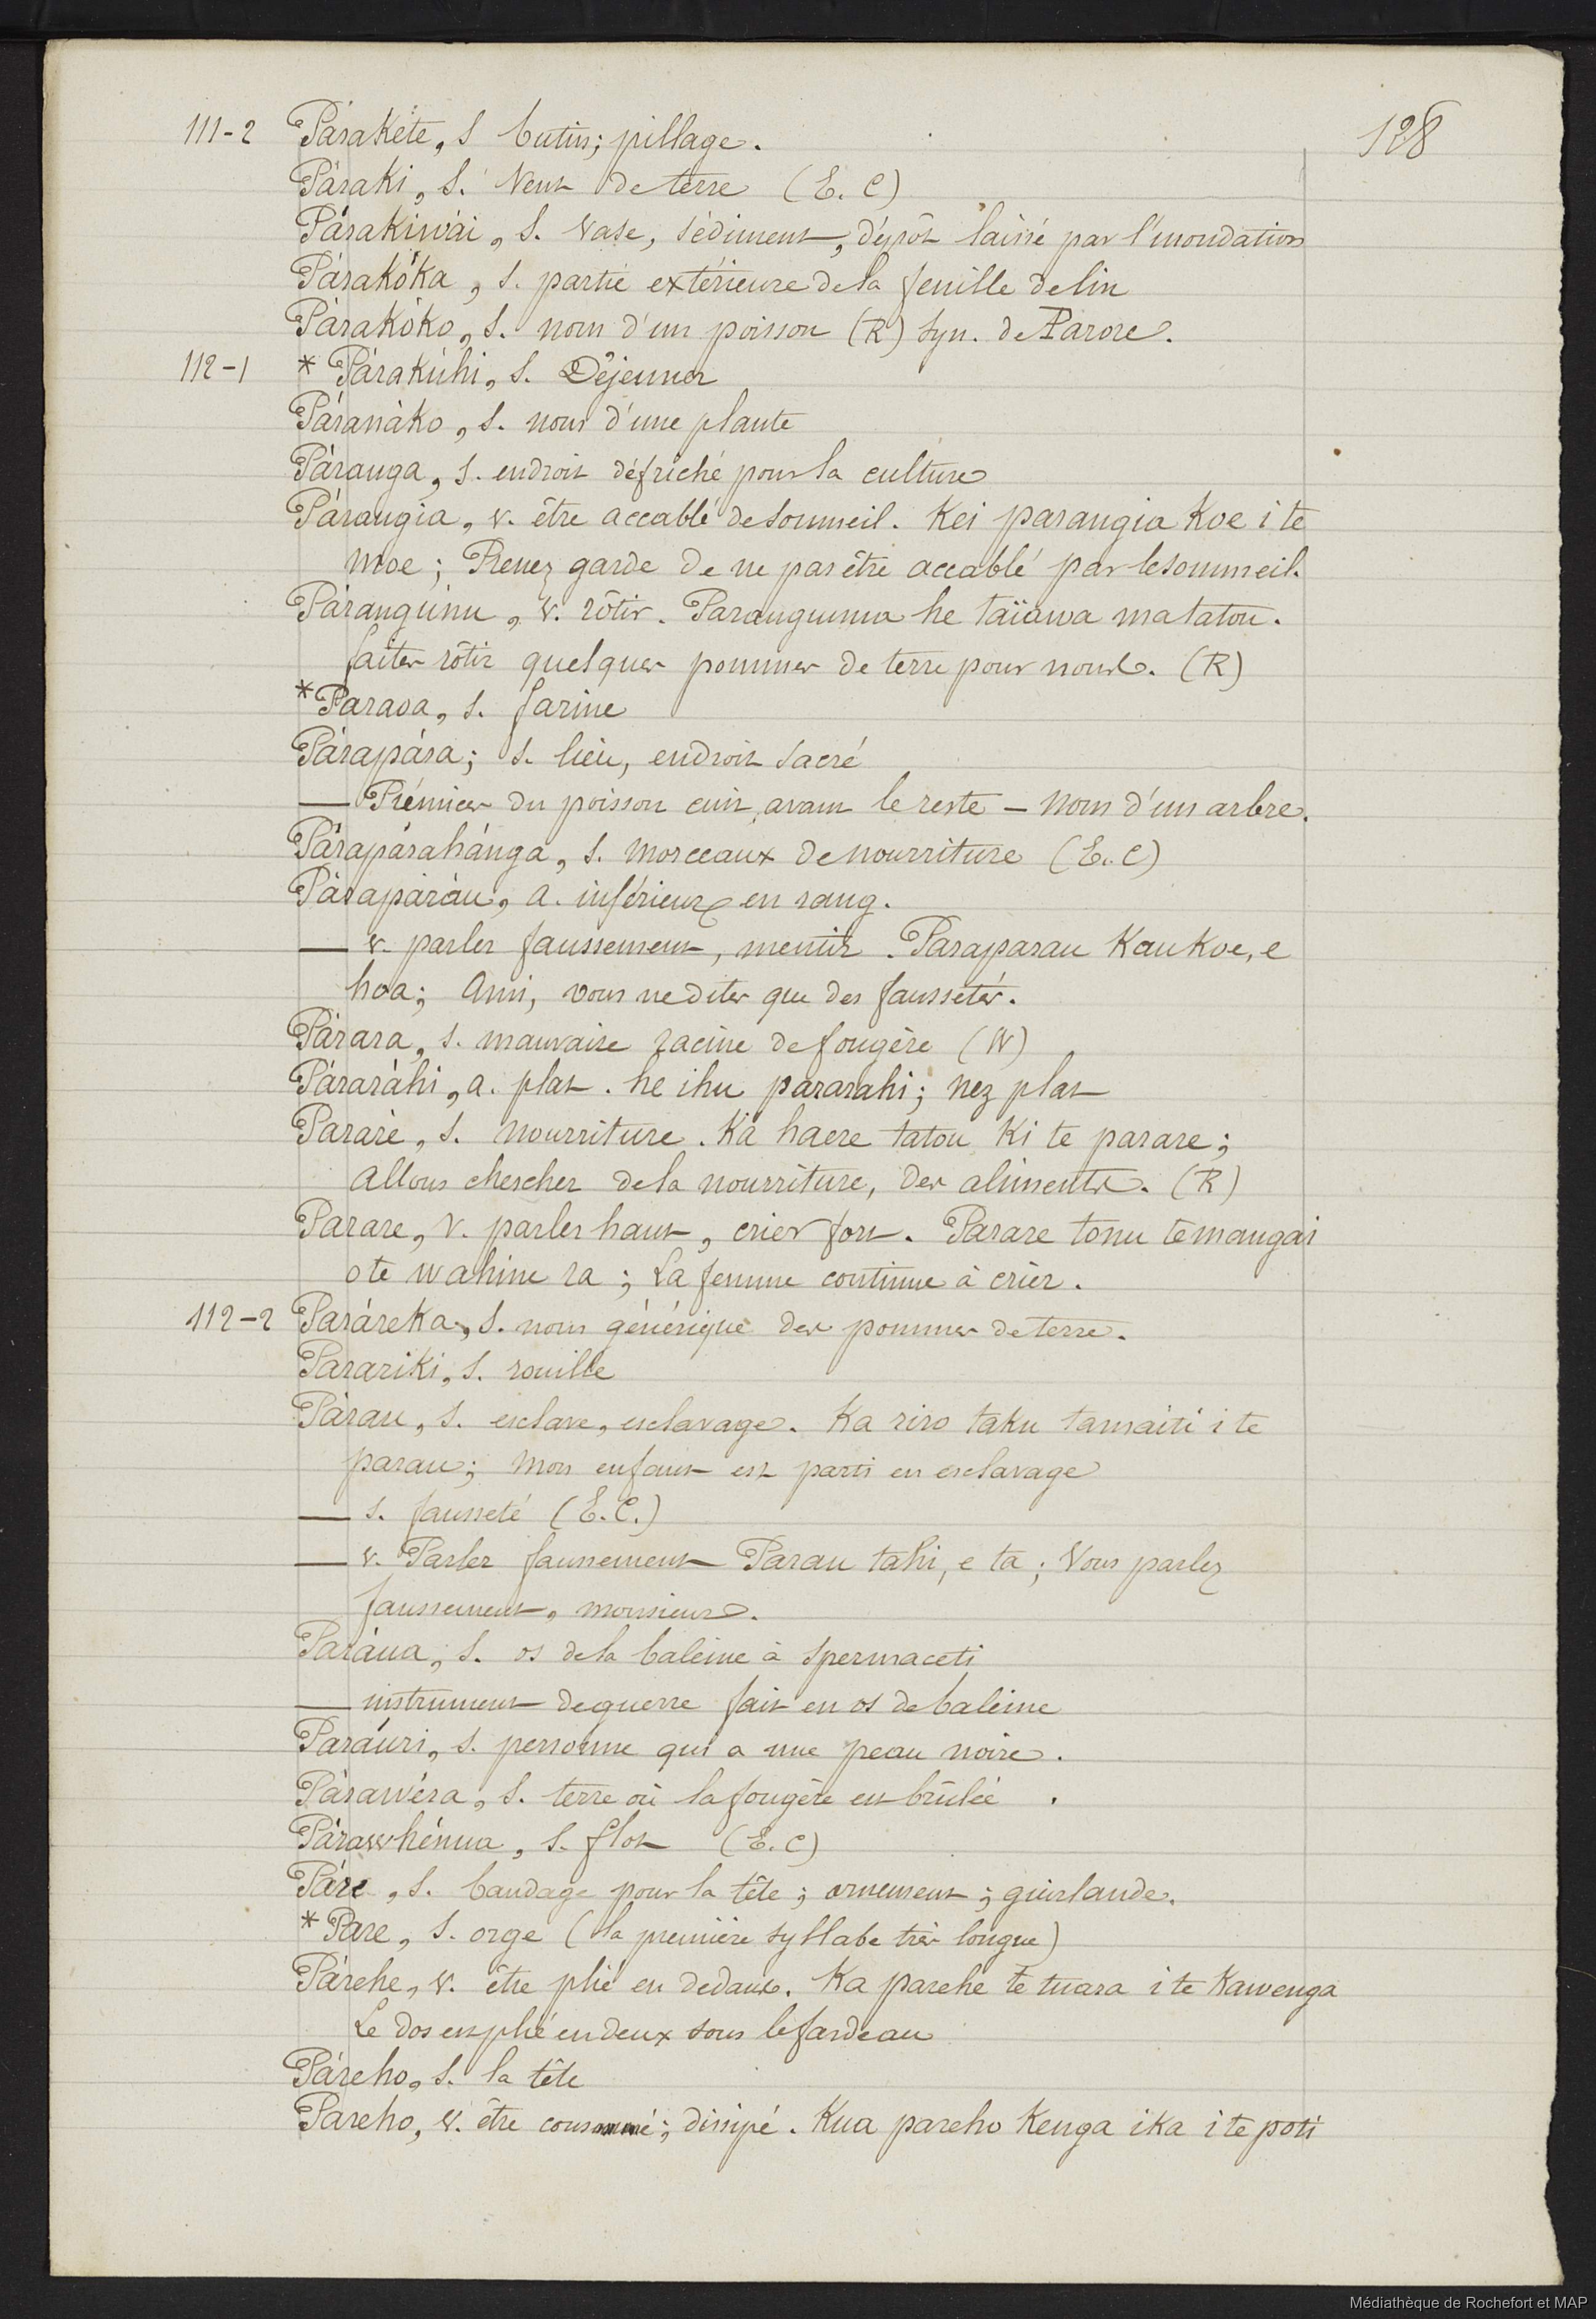 128
111-2 Párakéte, s butin; pillage.
Páraki, s. Vent de terre (E. C)
Párakiwái, s. Vase, sédiment, dépôt laissé par l'inondation
Párakóka, s. partie extérieure de la feuille de lin
Párakóko, s. nom d'un poisson (R) syn. de Parore.
112-1 * Párakúhi, s. Déjeuner
Páranáko, s. nom d'une plante
Páranga, s. endroit défriché pour la culture
Párangia, v. être accablé de sommeil. Kei parangia Koe i te
moe; Prenez garde de ne pas être accablé par le sommeil.
Párangúnu, v. rôtir. Parangunua he taïawa ma tatou.
faites rôtir quelques pommes de terre pour nous. (R)
* Paraoa, s. farine
Párapára; s. lieu, endroit sacré
— Prémices du poisson cuit, avant le reste — Nom d'un arbre.
Párapárahánga, s. Morceaux de nourriture (E. C)
Párapáráu, a. inférieur en rang.
— v. parler faussement, mentir. Paraparau Kau Koe, e
hoa; Ami, vous ne dites que des faussetés.
Párara, s. mauvaise racine de fougère (W)
Páraráhi, a. plat. he ihu pararahi; nez plat
Parare, s. nourriture. Ka haere tatou Ki te parare;
allons chercher de la nourriture, des aliments. (R)
Parare, v. parler haut, crier fort. Parare tonu te mangai
o te wahine ra; La femme continue à crier.
112-2 Paráreka, s. nom générique des pommes de terre.
Parariki, s. rouille
Párau, s. esclave, esclavage. Ka riro taku tamaiti i te
parau; Mon enfant est parti en esclavage
— s. fausseté (E. C.)
— v. Parler faussement Parau tahi, e ta; Vous parlez
faussement, monsieur.
Paráua, s. os de la baleine à spermaceti
— instrument de guerre fait en os de baleine
Paráuri, s. personne qui a une peau noire.
Párawéra, s. terre où la fougère est brûlée.
Párawhénua, s. flot (E. C)
Páre, s. bandage pour la tête; ornement; guirlande.
* Pare, s. orge (la première syllabe très longue)
Párehe, v. être plié en dedans. Ka parehe te tuara i te Kawenga
Le dos est plié en deux sous le fardeau
Páreho, s. la tête
Pareho, v. être consommé; dissipé. Kua pareho Kenga ika i te poti
Médiathèque de Rochefort et MAP